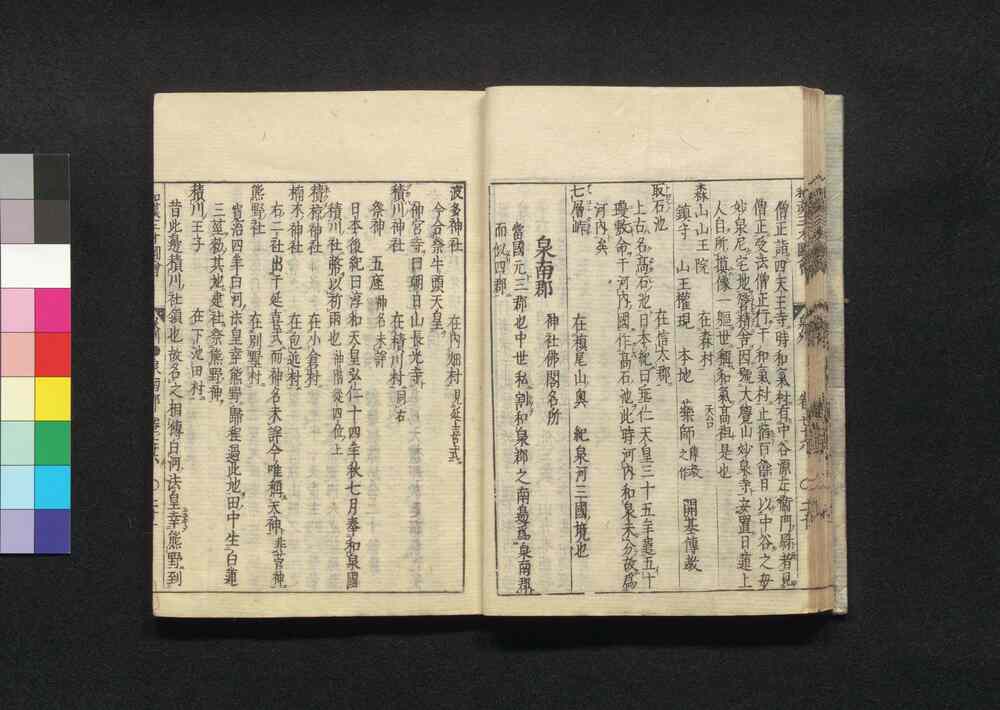 和漢三才圖會
僧正詣四天王寺時和氣村有中谷源左衞門縣者見
僧正受法僧正行于和氣村止宿百餘日以中谷之母
妙泉尼宅地營精舍因號大覺山妙泉寺安置日蓮上
人自所摸像一軀世稱和氣高祖是也
森山山王院 在森村
鎮守 山王權現 本地 藥師 開基傳教
取石池 在信太郡
上古名高石池日本紀曰垂仁天皇三十五年遣五十
瓊敷命于河内國作高石池此時河内和泉未分故爲
河内矣
七層峠 在槇尾山奥 紀泉河三國境也
泉南郡 神社佛閣名所
當國元三郡也中世私割和泉郡之南爲泉南郡
而似四郡
波多神社 在内畑村 見延喜式
今合祭牛頭天皇
神宮寺曰朝日山長光寺
積川神社 在積川村 同右
祭神 五座 神名未詳
日本後紀曰淳和天皇弘仁十四年秋七月奉和泉國
積川社幣以祈雨也 神階從四位上
積椋神社 在小倉村
楠本神社 在包近村
右二社出于延喜式而神名未詳今唯稱天神 非菅神
熊野社 在別野村
寬治四年白河法皇幸熊野歸程過此地田中生白蓮
三莖勅其地建社祭熊野神
積川王子 在下池田村
昔此邊積川社領也故名之相傳白河法皇幸熊野到